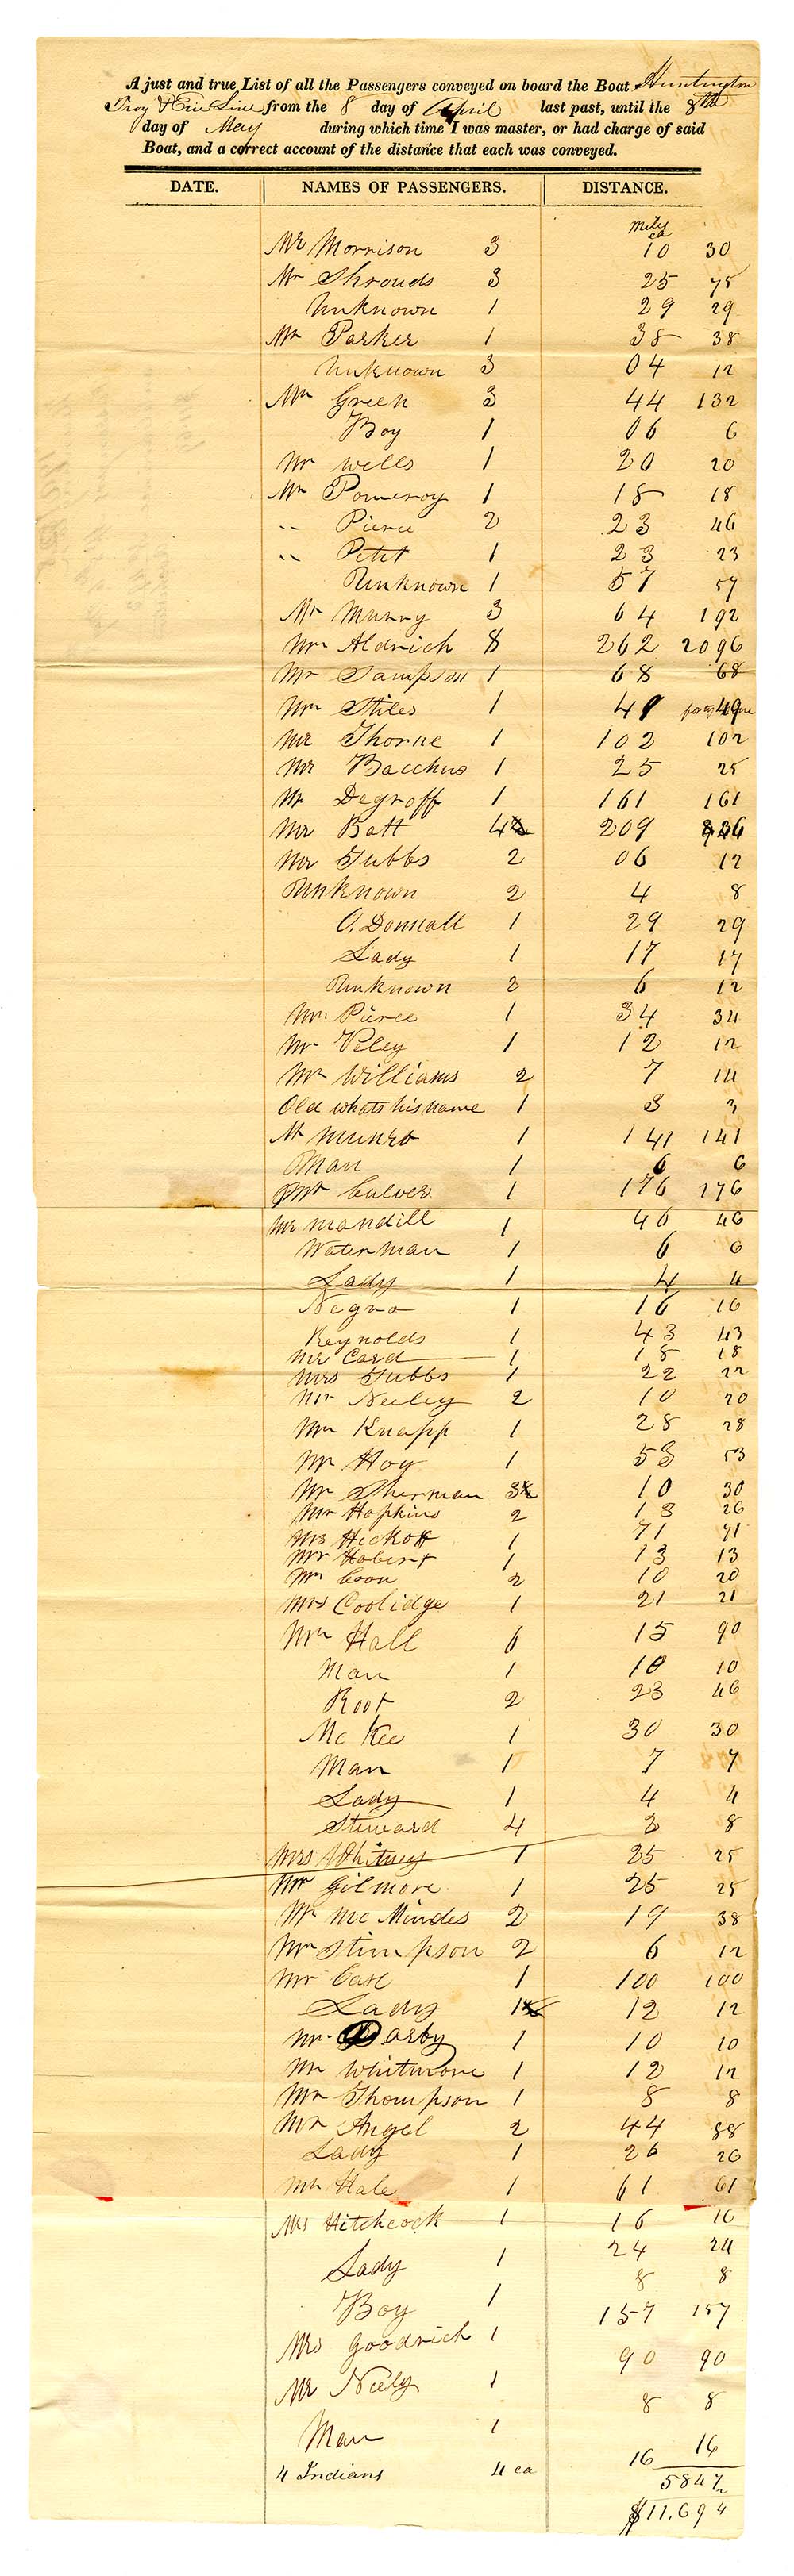 A just and true List of all the Passengers conveyed on board the Boat Huntington
Troy & Erie Line from the 8 day of April last past, until the 8th
day of May during which time I was master, or had charge of said
Boat, and a correct account of the distance that each was conveyed.
DATE. NAMES OF PASSENGERS. DISTANCE.
Miles
ea
Mr Morrison 3 10 30
Mr Shrouds 3 25 75
Unknown 1 29 29
Mr Parker 1 38 38
Unknown 3 04 12
Mr Green 3 44 132
Boy 1 06 6
Mr Wells 1 20 20
Mr Pomeroy 1 18 18
" Pierce 2 23 46
" Petit 1 23 23
Unknown 1 57 57
Mr Murry 3 64 192
Mr Aldrich 8 262 2096
Mr Sampson 1 68 68
Mr Stiles 1 49 49
Mr Thorne 1 102 102
Mr Bacchus 1 25 25
Mr Degroff 1 161 161
Mr Batt 4 209 836
Mr Tubbs 2 06 12
Unknown 2 4 8
O, Donnall 1 29 29
Lady 1 17 17
Unknown 2 6 12
Mr Pierce 1 34 34
Mr Veley 1 12 12
Mr Williams 2 7 14
Old whats his name 1 3 3
Mr Munro 1 141 141
Man 1 6 6
Mr Culver 1 176 176
Mr Mandill 1 46 46
Waterman 1 6 6
Lady 1 4 4
Negro 1 16 16
Reynolds 1 43 43
Mr Card 1 18 18
Mrs Tubbs 1 22 22
Mr Neeley 2 10 20
Mr Knapp 1 28 28
Mr Hoy 1 53 53
Mr Sherman 3 10 30
Mr Hopkins 2 13 26
Mrs Hickoff 1 71 71
Mr Hobert 1 13 13
Mr Coon 2 10 20
Mrs Coolidge 1 21 21
Mr Hall 6 15 90
Man 1 10 10
Root 2 23 46
Mc Kee 1 30 30
Man 1 7 7
Lady 1 4 4
Steward 4 2 8
Mrs Whitney 1 25 25
Mr Gilmore 1 25 25
Mr McMindes 2 19 38
Mr Stimpson 2 6 12
Mr Case 1 100 100
Lady 1 12 12
Mr Darby 1 10 10
Mr Whitmore 1 12 12
Mr Thompson 1 8 8
Mr Angel 2 44 88
Lady 1 26 26
Mr Hale 1 61 61
Mrs Hitchcock 1 16 16
Lady 1 24 24
Boy 1 8 8
Mrs Goodrich 1 157 157
Mr Neely 1 90 90
Man 1 8 8
4 Indians 4 ea 16 16
5847
$11,694